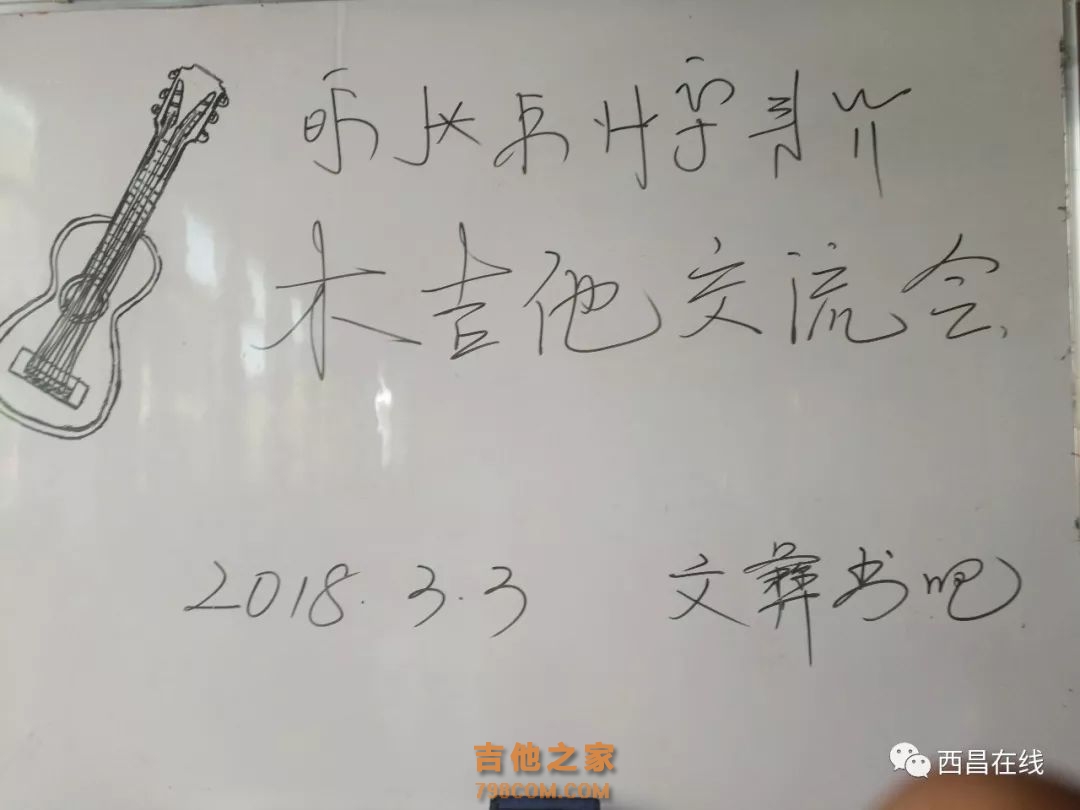 木吉他交流会
2018.3.3 文彝书吧
吉他之家
798COM.COM
西昌在线